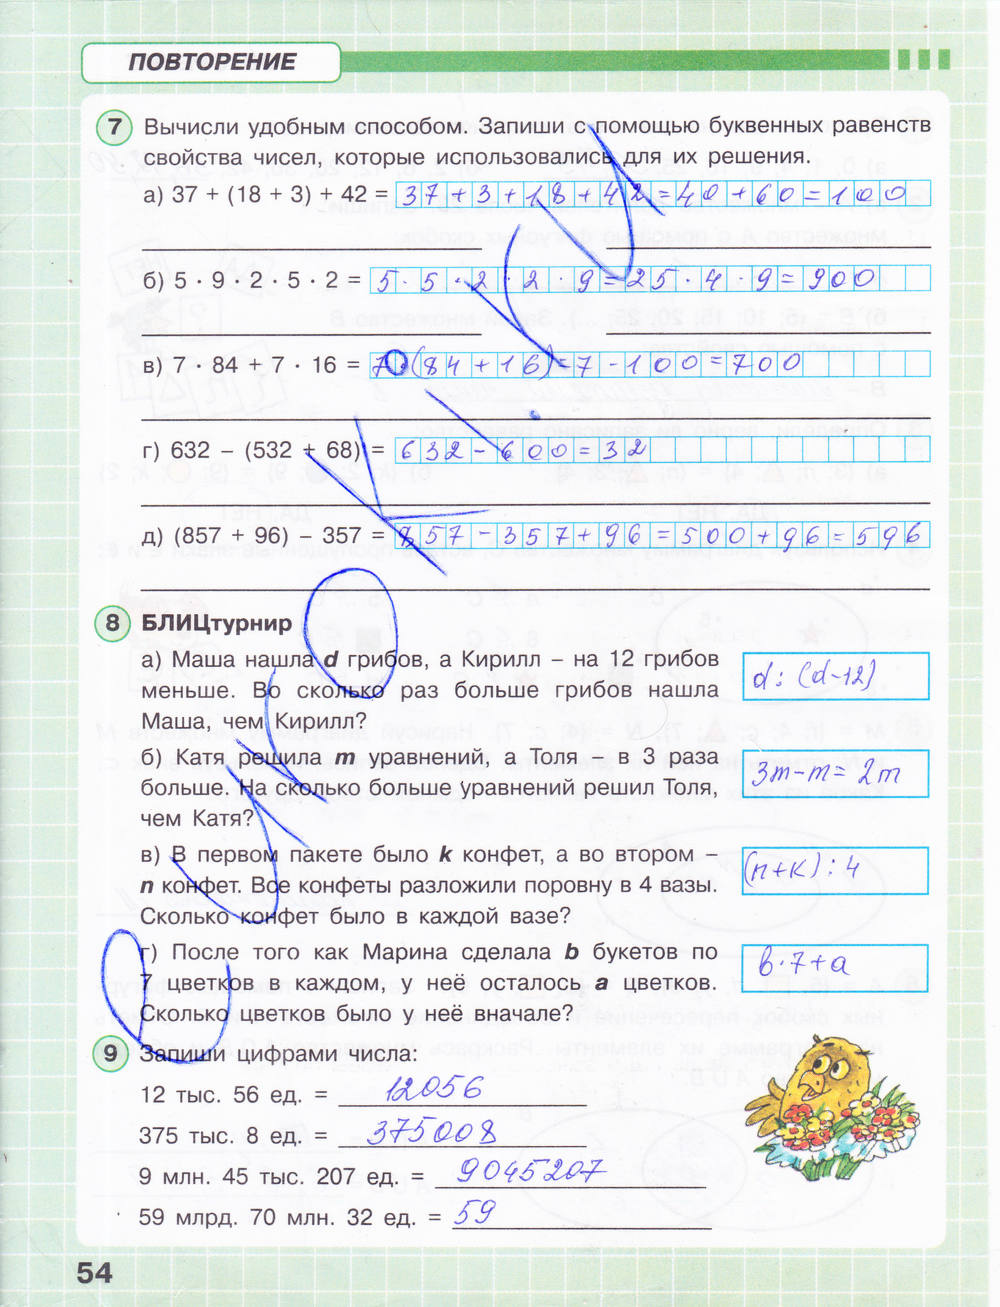 ПОВТОРЕНИЕ
7 Вычисли удобным способом. Запиши с помощью буквенных равенств
свойства чисел, которые использовались для их решения.
а) 37 + (18 + 3) + 42 = 37+3+18+42=40+60=100
б) 5 · 9 · 2 · 5 · 2 = 5·5·2·2·9=25·4·9=900
в) 7 · 84 + 7 · 16 = 7·(84+16)=7·100=700
г) 632 – (532 + 68) = 632-600=32
д) (857 + 96) – 357 = 857-357+96=500+96=596
8 БЛИЦтурнир
а) Маша нашла d грибов, а Кирилл – на 12 грибов
меньше. Во сколько раз больше грибов нашла
Маша, чем Кирилл?
d:(d-12)
б) Катя решила m уравнений, а Толя – в 3 раза
больше. На сколько больше уравнений решил Толя,
чем Катя?
3m-m=2m
в) В первом пакете было k конфет, а во втором –
n конфет. Все конфеты разложили поровну в 4 вазы.
Сколько конфет было в каждой вазе?
(n+k):4
г) После того как Марина сделала b букетов по
7 цветков в каждом, у неё осталось a цветков.
Сколько цветков было у неё вначале?
b·7+a
9 Запиши цифрами числа:
12 тыс. 56 ед. = 12056
375 тыс. 8 ед. = 375008
9 млн. 45 тыс. 207 ед. = 9045207
59 млрд. 70 млн. 32 ед. = 59
54